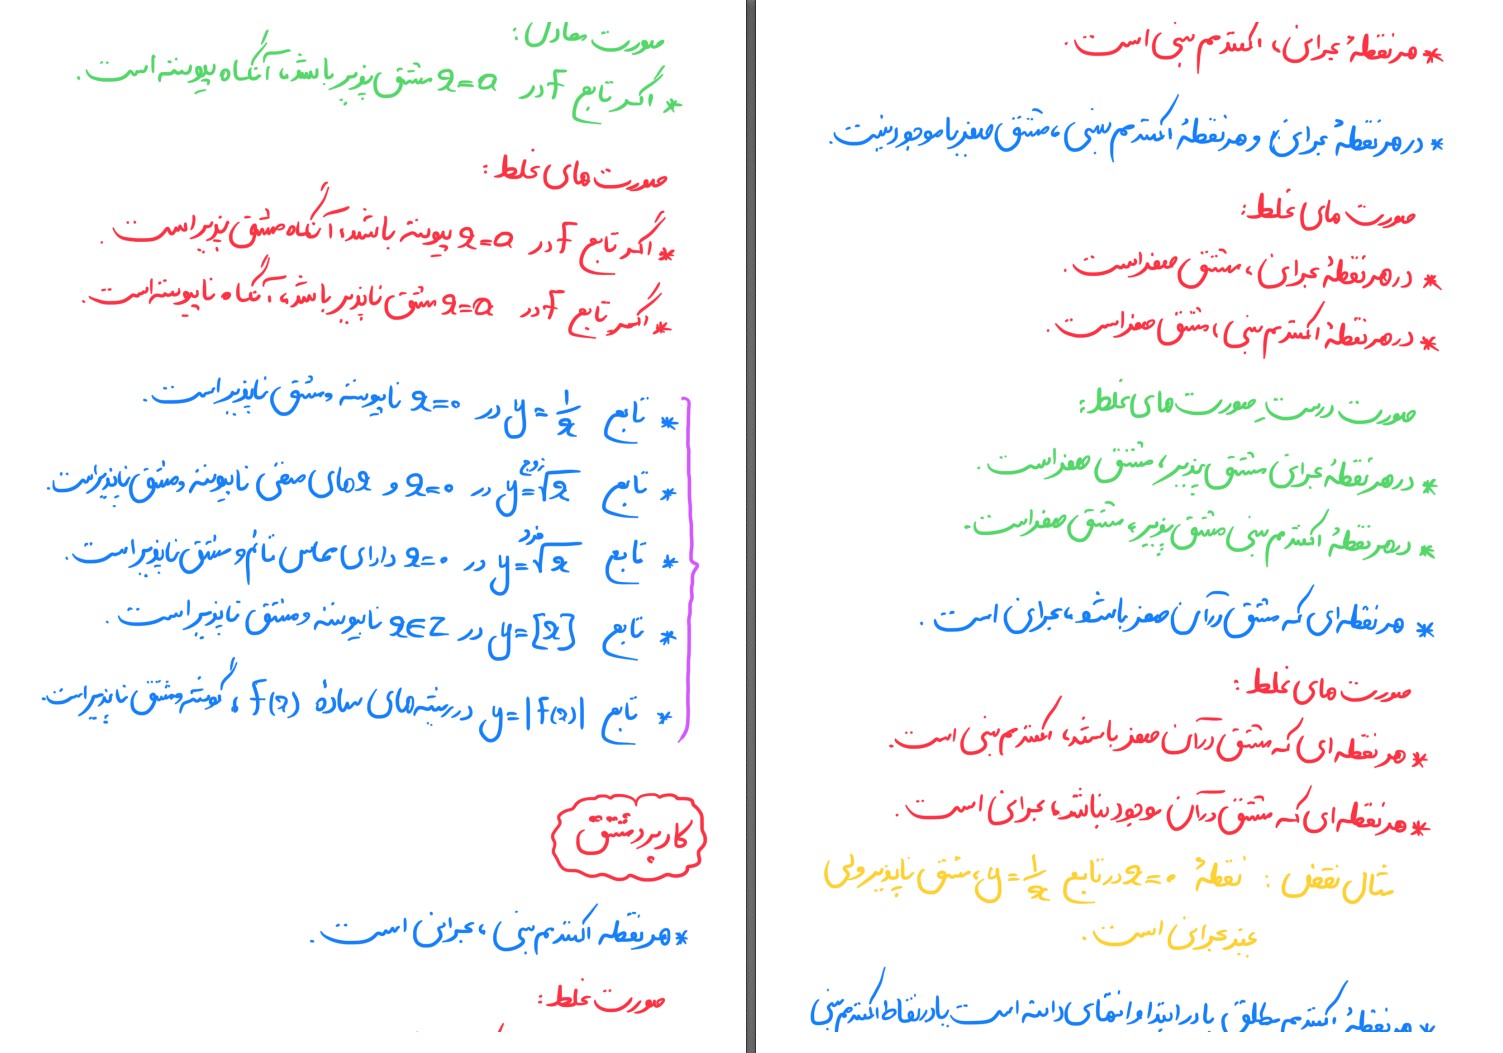 صورت معادل:
* اگر تابع f در x=a مشتق پذیر باشد، آنگاه پیوسته است.
صورت های غلط:
* اگر تابع f در x=a پیوسته باشد، آنگاه مشتق پذیر است.
* اگر تابع f در x=a مشتق ناپذیر باشد، آنگاه ناپیوسته است.
* تابع y=1/x در x=0 ناپیوسته و مشتق ناپذیر است.
* تابع y=√x زوج در x=0 و xهای منفی ناپیوسته و مشتق ناپذیر است.
* تابع y=√x فرد در x=0 دارای مماس قائم و مشتق ناپذیر است.
* تابع y=[x] در x∈Z ناپیوسته و مشتق ناپذیر است.
* تابع y=|f(x)| در ریشه های سادهٔ f(x)، گوشه و مشتق ناپذیر است.
کاربرد مشتق
* هر نقطه اکسترمم نسبی، بحرانی است.
صورت غلط:
* هر نقطهٔ بحرانی، اکسترمم نسبی است.
* در هر نقطهٔ بحرانی و هر نقطهٔ اکسترمم نسبی، مشتق صفر یا موجود نیست.
صورت های غلط:
* در هر نقطهٔ بحرانی، مشتق صفر است.
* در هر نقطهٔ اکسترمم نسبی، مشتق صفر است.
صورت درست صورت های غلط:
* در هر نقطهٔ بحرانی مشتق پذیر، مشتق صفر است.
* در هر نقطهٔ اکسترمم نسبی مشتق پذیر، مشتق صفر است.
* هر نقطه ای که مشتق در آن صفر باشد، بحرانی است.
صورت های غلط:
* هر نقطه ای که مشتق در آن صفر باشد، اکسترمم نسبی است.
* هر نقطه ای که مشتق در آن موجود نباشد، بحرانی است.
مثال نقض: نقطهٔ x=0 در تابع y=1/x، مشتق ناپذیر ولی
غیر بحرانی است.
* هر نقطهٔ اکسترمم مطلق یا در ابتدا و انتهای دامنه است یا در نقاط اکسترمم نسبی